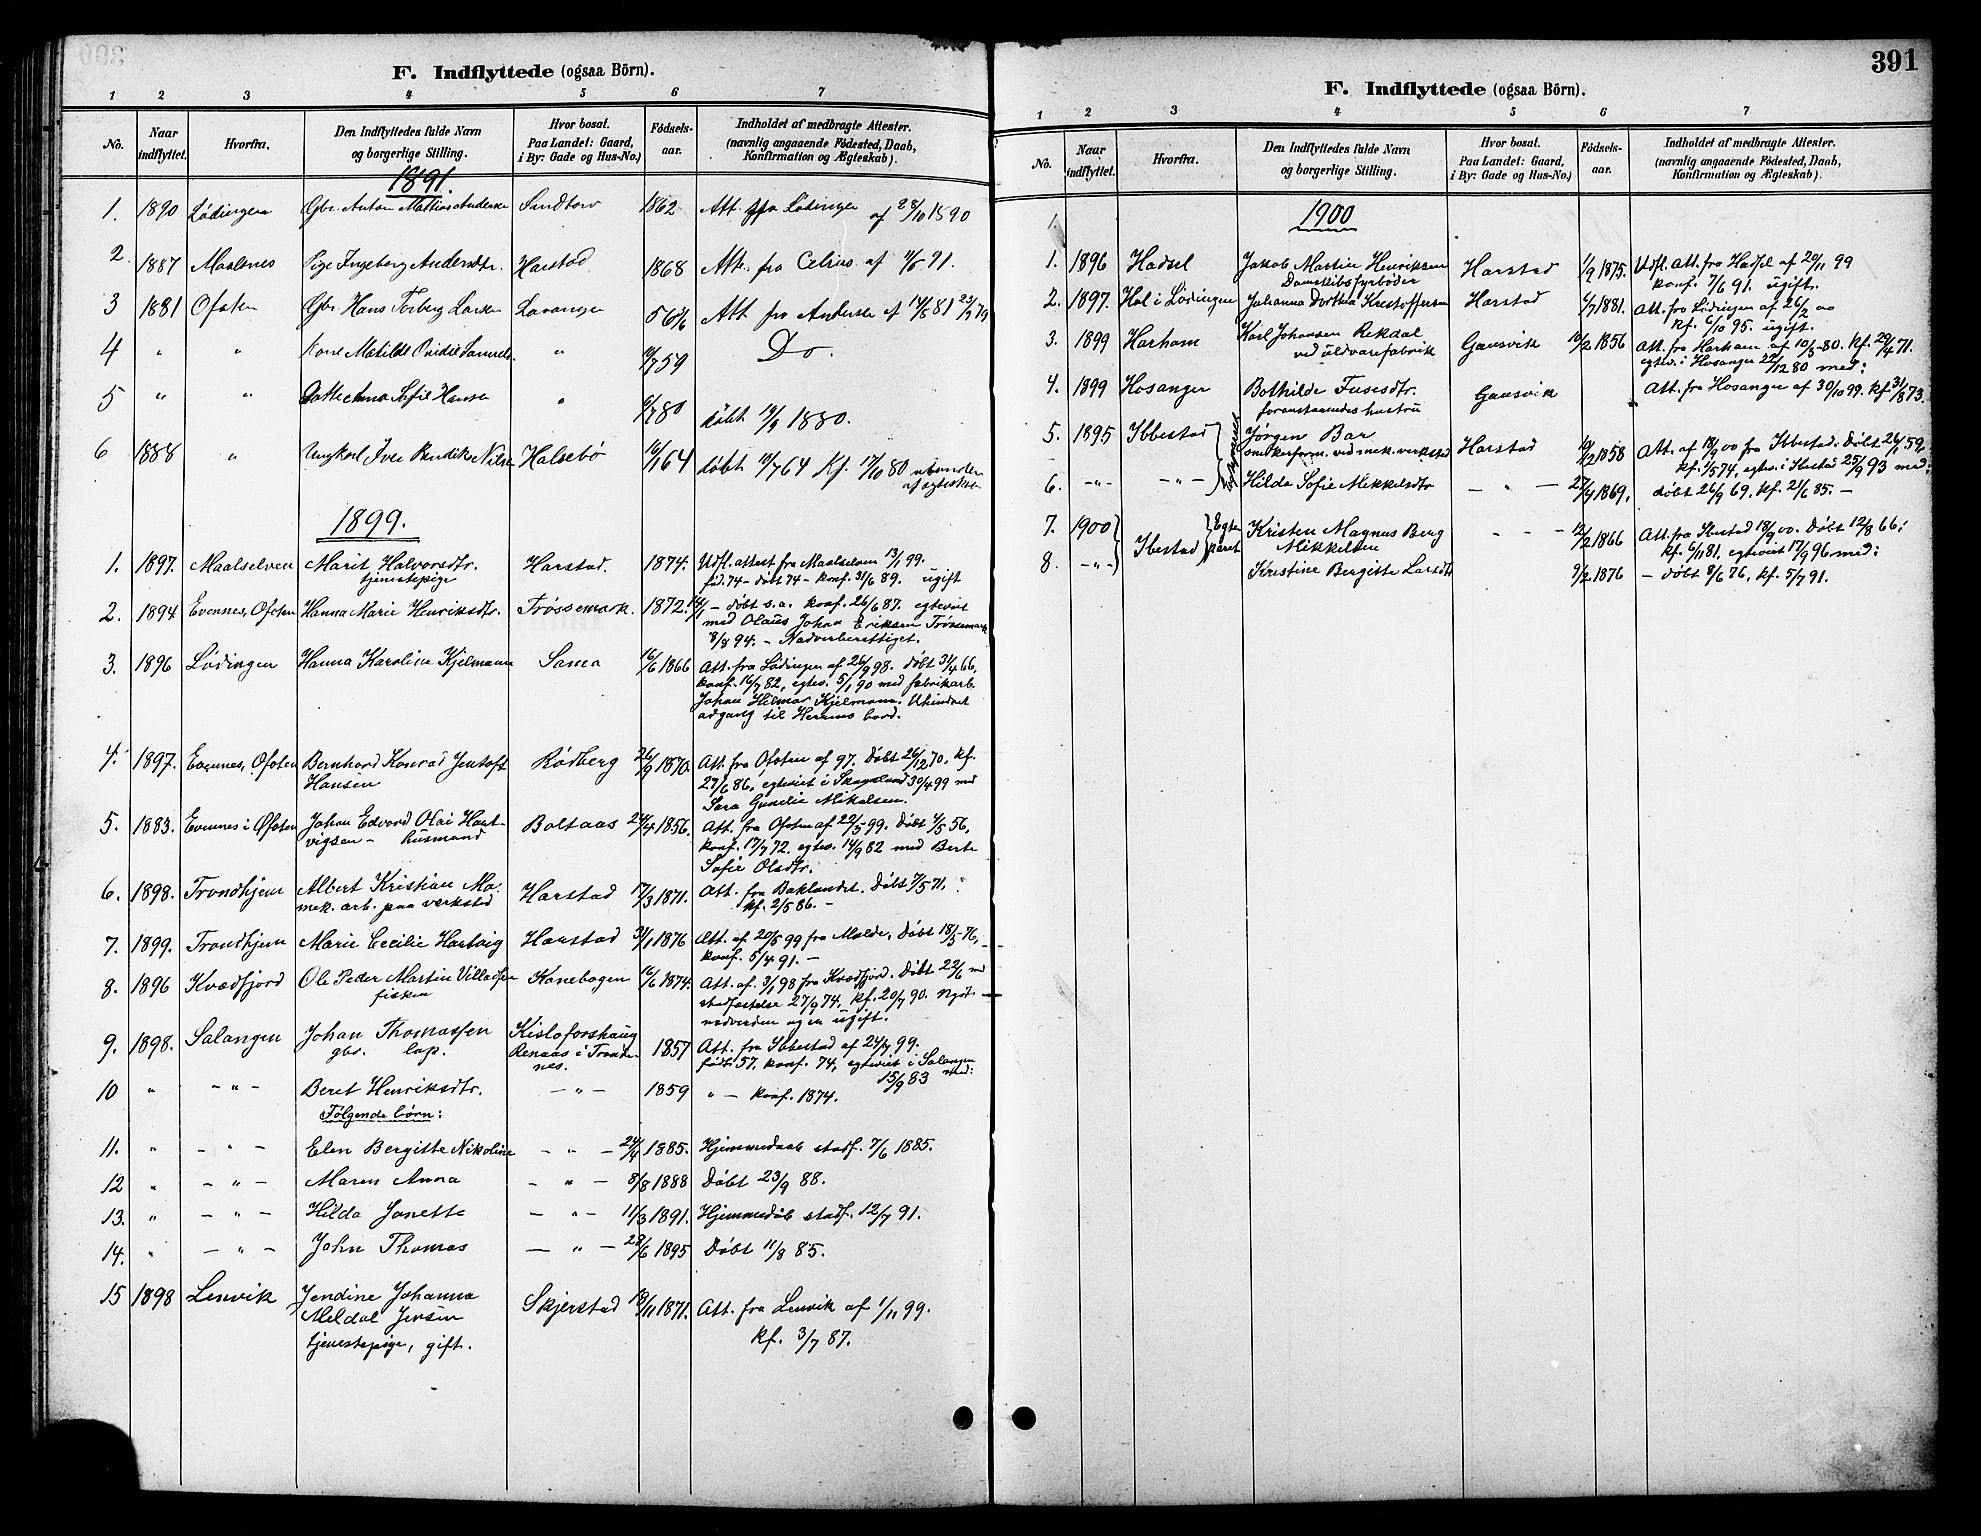 F. Indflyttede (ogsaa Börn).
1 2 3 4 5 6 7
No. Naar indflyttet. Hvorfra. Den Indflyttedes fulde Navn og borgerlige Stilling. Hvor bosat. Paa Landet: Gaard, i By: Gade og Hus-No.) Fødsels-aar. Indholdet af medbragte Attester. (navnlig angaaende Fødested, Daab, Konfirmation og Ægteskab).
1891.
1. 1890 Lødingen Gbr. Anton Mathias Anderse Sandtorv 1862 Att. fra Lødingen af 28/10 1890
2 1887 Maalsnes Pige Ingeborg Andersdtr. Harstad 1868 Att. fra Celius af 91.
3 1881 Ofoten Gbr. Hans Torberg Larsen Lavangen Att fra Anderse af 81
4 " " Kone Matilde " 59 Do.
5 " " Datter Anna Sofie Hanse " 80 døbt 1880.
6 1888 " Ungkarl Iver Bendik Nilse Halsebø 64 døbt 64 Kf. 80 ubunden af egteskab
1899.
1. 1897. Maalselven Marit Halvorsdtr. Harstad. 1874. Udfl. attest fra Maalselven 13/1 99.
tjenestepige fød. 74 - døbt 74 - konf. 31/6 89. ugift
2. 1894 Evennes, Ofoten Hanna Marie Henriksdtr. Trøssemark. 1872. - døbt s.a. konf. 26/6 87. egteviet
med Olaus Johan Eriksen Trøssemark
8/8 94. - Nadverberettiget.
3. 1896 Lødingen Hanna Karolina Kjelmann Sama 16/6 1866 Att. fra Lødingen af 26/9 98. døbt 31/4 66,
konf. 16/7 82, egtev. 5/1 90 med fabrikarb.
Johan Hilmar Kjelmann. Uhindret
adgang til Herrens bord.
4. 1897. Evennes, Ofoten Bernhard Konrad Jentoft Rødberg 26/9 1870. Att. fra Ofoten af 97. Døbt 26/12 70, kf.
Hansen 27/6 86, egteviet i Skaanland 30/4 99 med
Sara Gunelie Mikalsen.
5. 1883. Evennes i Ofoten Johan Edvard Olai Hart- Boltaas 24/4 1856. Att. fra Ofoten af 22/5 99. Døbt 4/5 56,
vigsen - husmand konf. 17/7 72. egtev. 14/9 82 med Berte
Sofie Olsdtr.
6. 1898. Trondhjem Albert Kristian Mo. Harstad 17/3 1871. Att. fra Baklandet. Døbt 7/5 71.
mek. arb. paa verksted kf. 2/5 86. -
7. 1899. Trondhjem Marie Cecilie Hartvig Harstad 31/1 1876 Att. af 20/5 99 fra Molde. Døbt 18/5 76,
konf. 5/4 91. -
8. 1896 Kvædfjord Ole Peder Martin Kanebogen 16/6 1874. Att. af 3/1 98 fra Kvædfjord. Døbt 22/6 med
fisker stadfæstelse 27/9 74, kf. 20/7 90. Nydt
nadverden og er ugift.
9. 1898. Salangen Johan Thomassen Kisloforshaug 1857 Att. fra Ibbestad af 24/7 99.
gbr. lap. Renaas i Tronde- født 57. konf. 74, egteviet i Salangen
nes. 15/9 83 med:
10 " - " - Beret Henriksdtr. - " - 1859 " - konf. 1874.
Følgende børn:
11. " - " - Elen Bergitte Nikoline - " - 24/4 1885. Hjemmedaab stadf. 7/6 1885.
12 " - " - Maren Anna - " - 8/8 1888 Døbt 23/9 88.
13. " - " - Hilda Jonette - " - 11/3 1891. Hjemmedøb stadf. 12/7 91.
14. " - " - John Thomas - " - 28/6 1895 Døbt 11/8 85.
15 1898 Lenvik Jendine Johanna Skjerstad 18/11 1871. Att. fra Lenvik af 1/11 99.
Meldal Jensen kf. 3/7 87.
tjenestepige, gift.
391
F. Indflyttede (ogsaa Börn).
1 2 3 4 5 6 7
No. Naar indflyttet. Hvorfra. Den Indflyttedes fulde Navn og borgerlige Stilling. Hvor bosat. Paa Landet: Gaard, i By: Gade og Hus-No.) Fødsels-aar. Indholdet af medbragte Attester. (navnlig angaaende Fødested, Daab, Konfirmation og Ægteskab).
1. 1900
1. 1896 Hadsel Jakob Martin Henriksen Harstad 1/9 1875. Udfl. att. fra Hadsel af 20/11 99
Damskibsfyrbøder konf. 7/6 91. ugift.
2. 1897. Hol i Lødingen Johanna Dorthea Kristoffersen Harstad 6/7 1881. Att. fra Lødingen af 26/2 00
kf. 6/10 95. ugift.
3. 1899 Harham Karl Johansen Rekdal Gausvik 10/2 1856 Att. fra Harham af 10/5 80. kf. 29/4 71.
ved uldvarefabrik egtev. i Hosanger 22/12 80 med:
4. 1899 Hosanger Bothilde Fusesdtr. Gausvik Att. fra Hosanger af 30/10 99. kf. 31/8 73.
foranstaaendes hustru
5. 1895 Ibbestad Jørgen Bar Harstad 1858 Att. af 18/9 00 fra Ibbestad. Døbt 26/1 59,
ved mek. verksted kf. 74, egtev. i Ibestad 25/9 93 med:
6. - " - - " - Hilda Sofie Mikkelsdtr - " - 27/4 1869. døbt 26/9 69. kf. 21/6 85. -
7. 1900 Ibestad Egteparet Kristen Magnus Berg - " - 12/2 1866 Att. fra Ibestad 18/9 00. Døbt 12/8 66.
Mikkelsen kf. 6/11 81. egteviet 17/9 96 med:
8. - " - Kristine Bergitte Larsdtr 9/2 1876 - døbt 8/6 76, kf. 5/7 91.